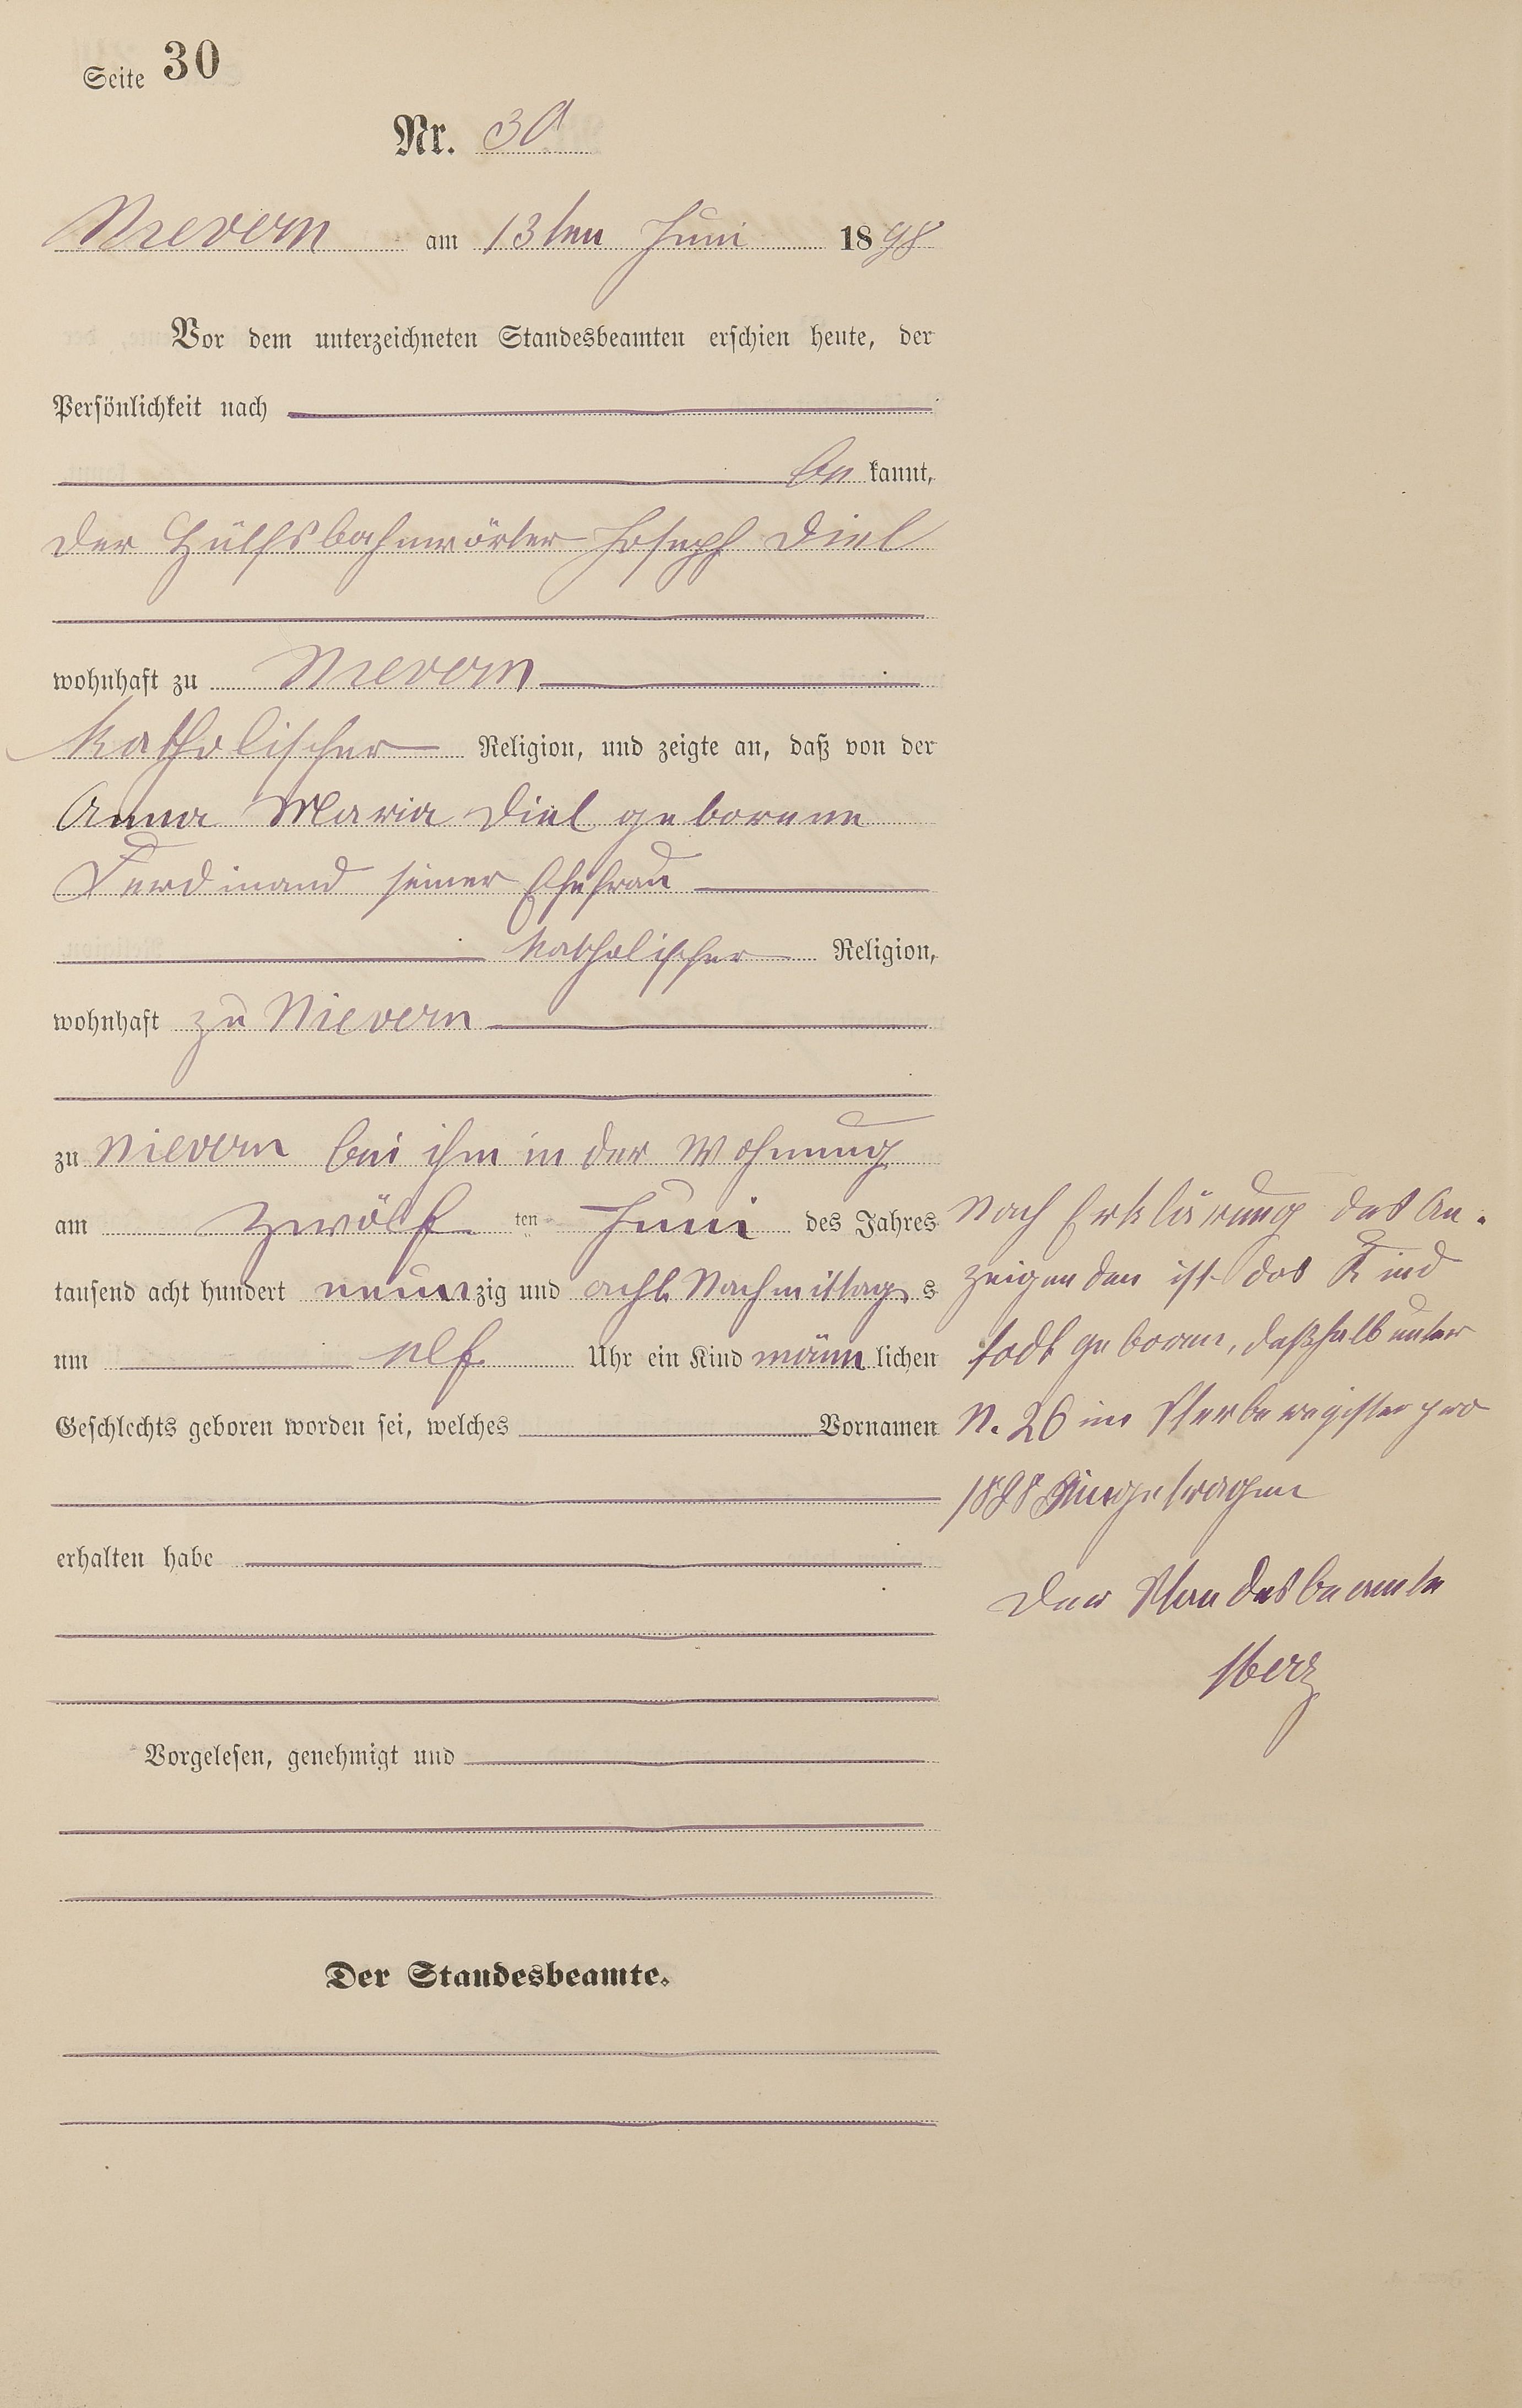 Seite 30
Nr. 30
Nievern am 13ten Juni 1898
Vor dem unterzeichneten Standesbeamten erschien heute, der
Persönlichkeit nach
be kannt,
der Hülfsbahnwärter Joseph Diel
wohnhaft zu Nievern
katholischer Religion, und zeigte an, daß von der
Anna Maria Diel geborene
Ferdinand seiner Ehefrau
katholischer Religion,
wohnhaft zu Nievern
zu Nievern bei ihm in der Wohnung
am zwölf ten Juni des Jahres
tausend acht hundert neunzig und acht Nachmittags
um elf Uhr ein Kind männlichen
Geschlechts geboren worden sei, welches Vornamen
erhalten habe
Vorgelesen, genehmigt und
Der Standesbeamte.
Nach Erklärung des An-
zeigenden ist das Kind
todt geboren, deßhalb unter
N. 26 im Sterberegister pro
1898 Eingetragen
Der Standesbeamte